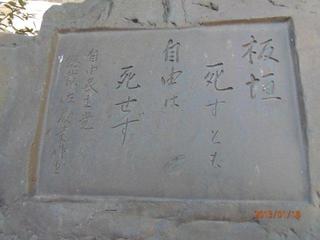 板垣
死すとも
自由は
死せず
自由民主党
2013/01/18